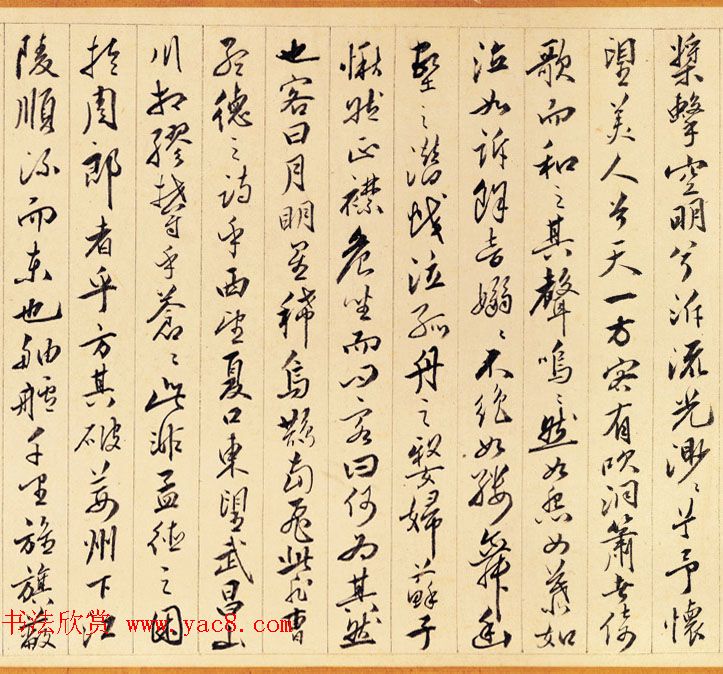 槳擊空明兮泝流光渺〻兮予懷
望美人兮天一方客有吹洞簫者倚
歌而和之其聲嗚〻然如怨如慕如
泣如訴餘音嫋〻不絕如縷舞幽
壑之潛蛟泣孤舟之嫠婦蘇子
愀然正襟危坐而問客曰何為其然
也客曰月明星稀烏鵲南飛此非曹
孟德之詩乎西望夏口東望武昌山
川相繆鬱乎蒼〻此非孟德之困
於周郎者乎方其破荊州下江
陵順流而東也舳艫千里旌旗蔽
书法欣赏 www.yac8.com